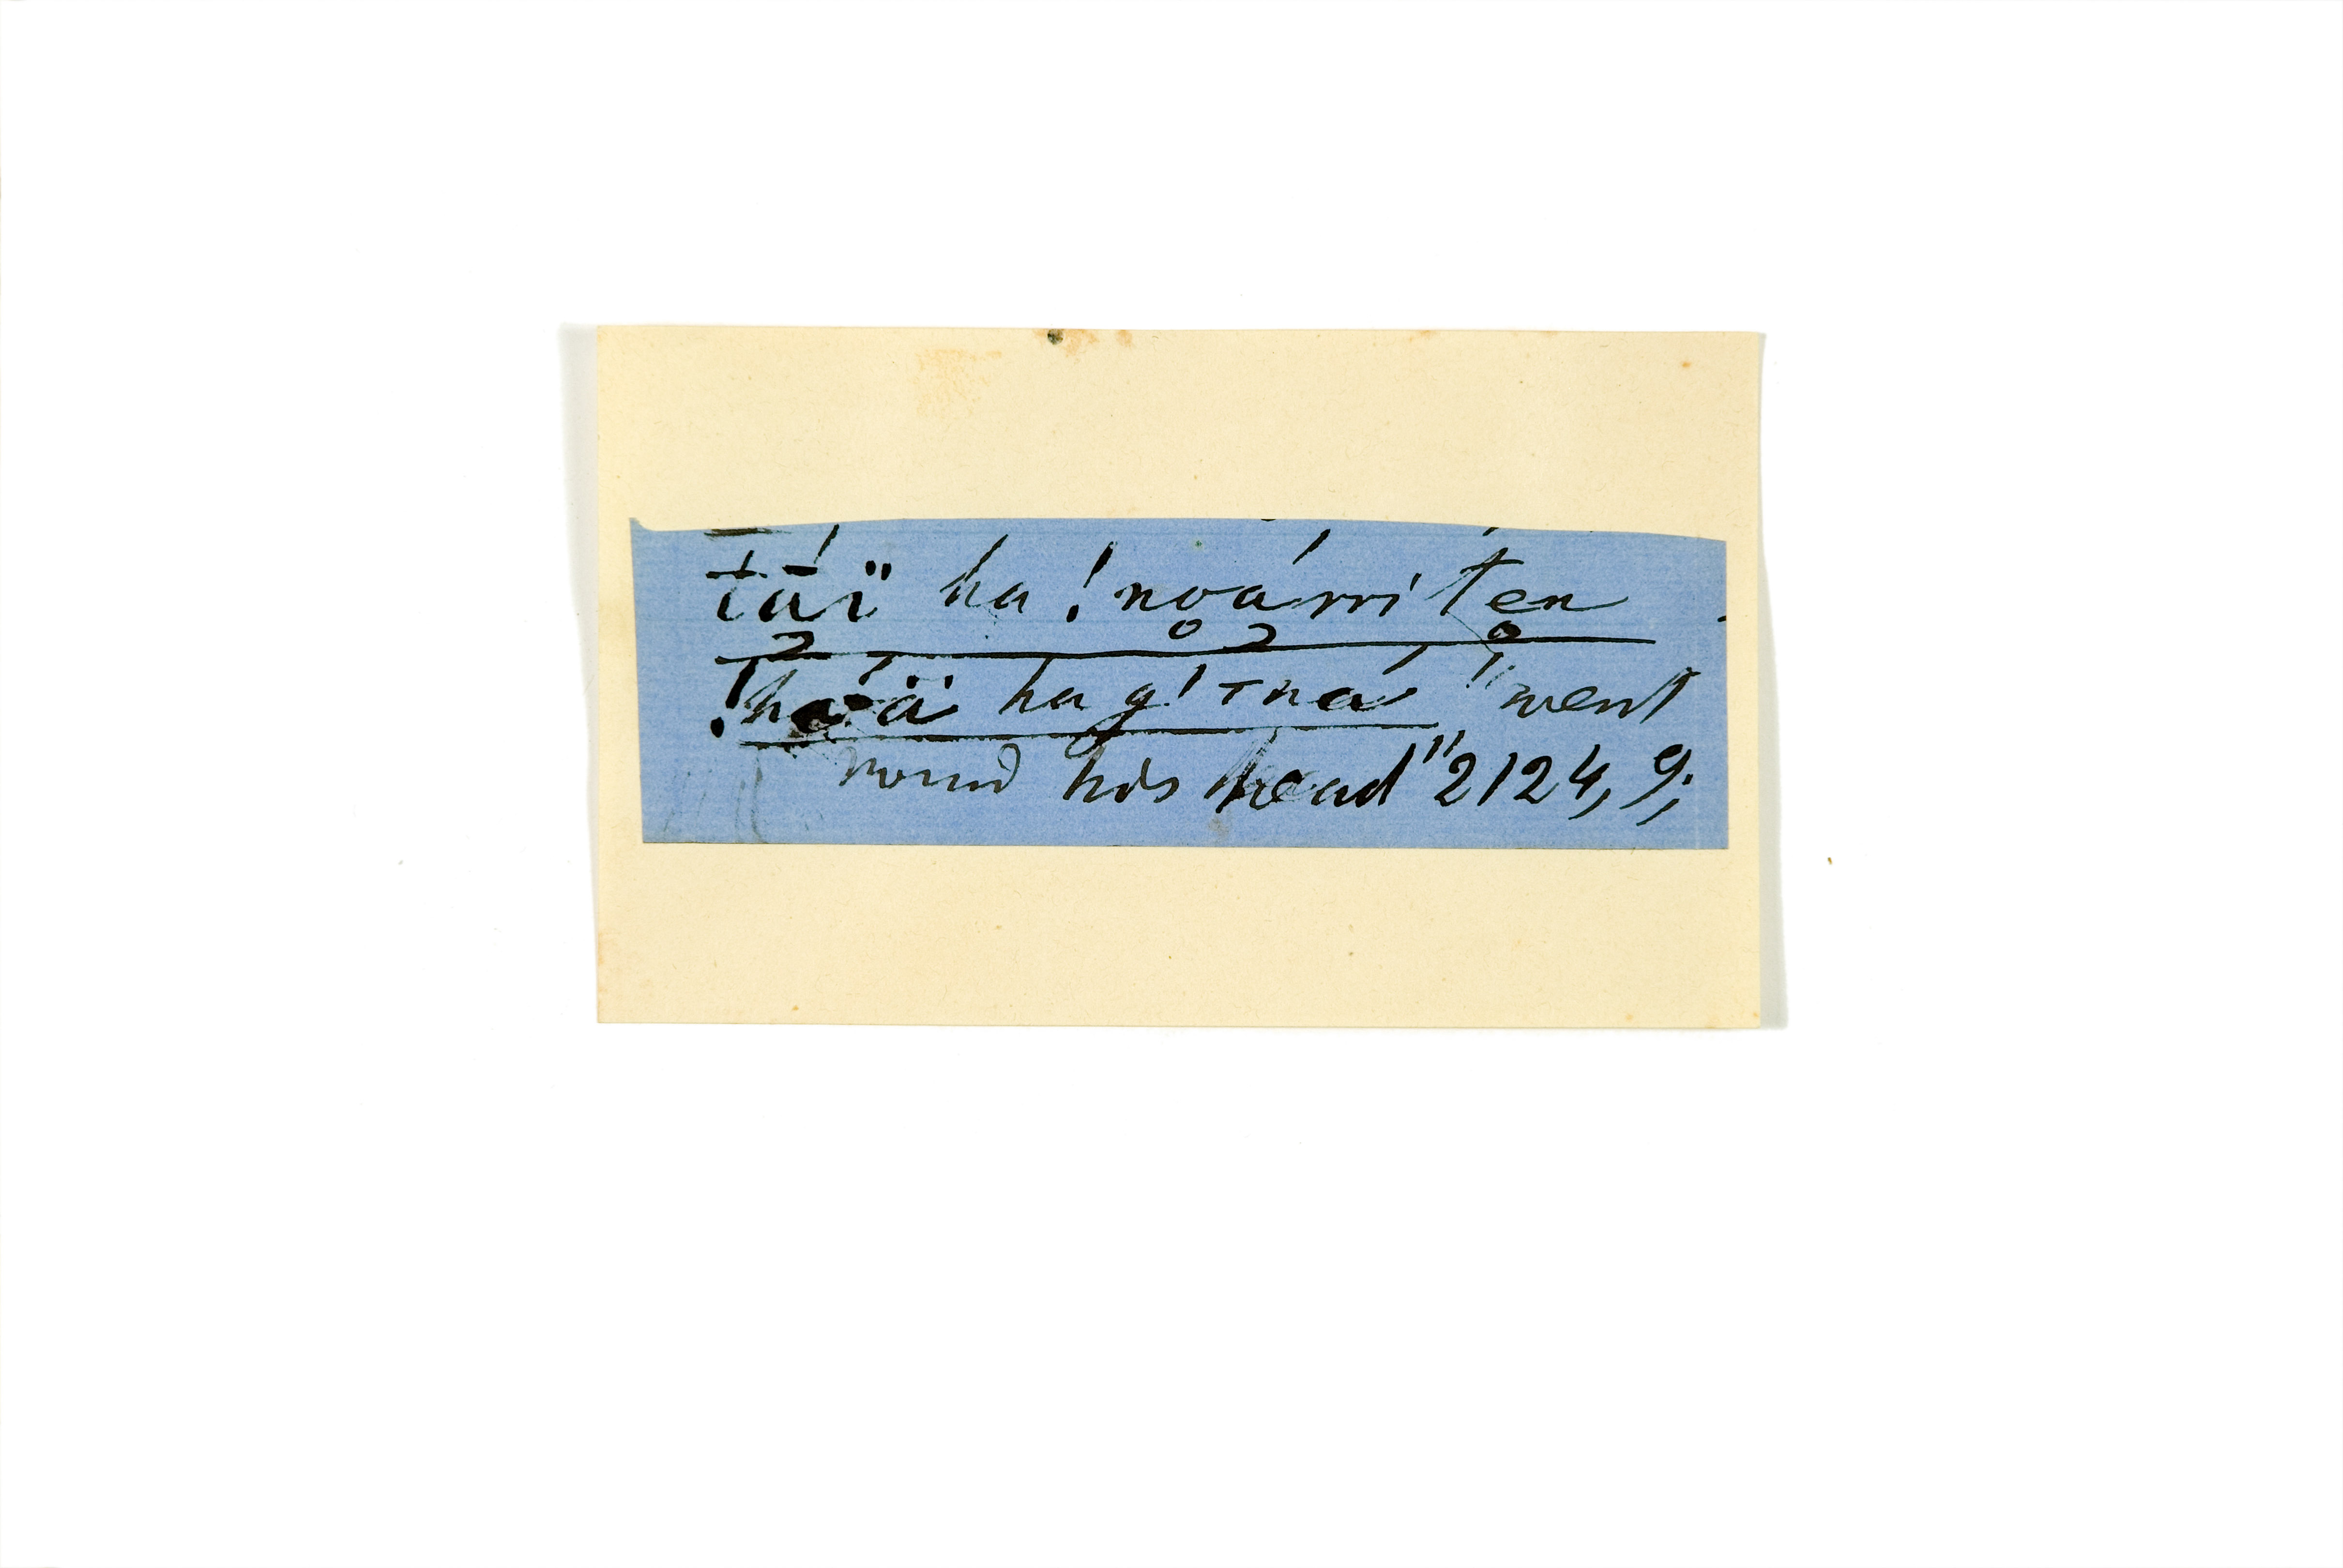 tā́ï ha !nṵá̰rri té̥n
!há̰ä ha g̥!⊤ná "went
round his head" 2124, 9;